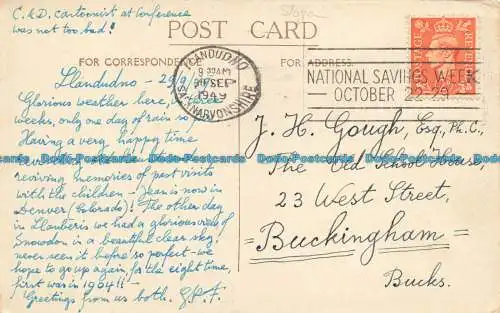 C. & D. cartoonist at Conference
was not too bad!
POST CARD
FOR CORRESPONDENCE
FOR ADDRESS
LLANDUDNO
30 SEP
1949
CAERNARVONSHIRE
NATIONAL SAVINGS WEEK
OCTOBER 22-29
POSTAGE REVENUE
Llandudno - 29/9/
Glorious weather here,
weeks, only one day of rain so f
Having a very happy time
reviving memories of past visits
with the children - Jean is now in
Denver (Colorado)! The other day
in Llanberis we had a glorious view of
Snowdon in a beautiful clear sky!
never seen it before so perfect - we
hope to go up again, for the eighth time,
first was in 1904!!
Greetings from us both.
J. H. Gough, Esq., Ph.C.,
The Old School House,
23 West Street,
Buckingham
Bucks.